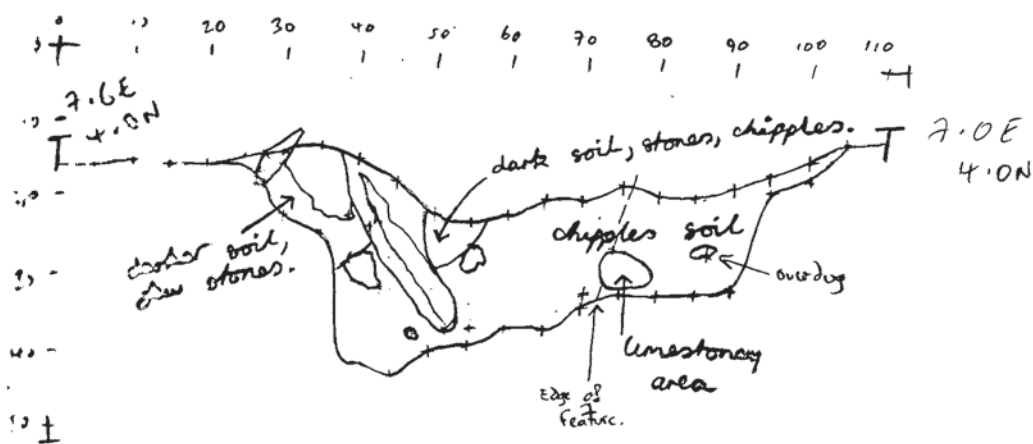 0 10 20 30 40 50 60 70 80 90 100 110
7.6E
4.0N
7.0E
4.0N
dark soil, stones, chipples.
soil,
stones.
chipples soil
overdug
limestoney
area
Edge of
Feature.